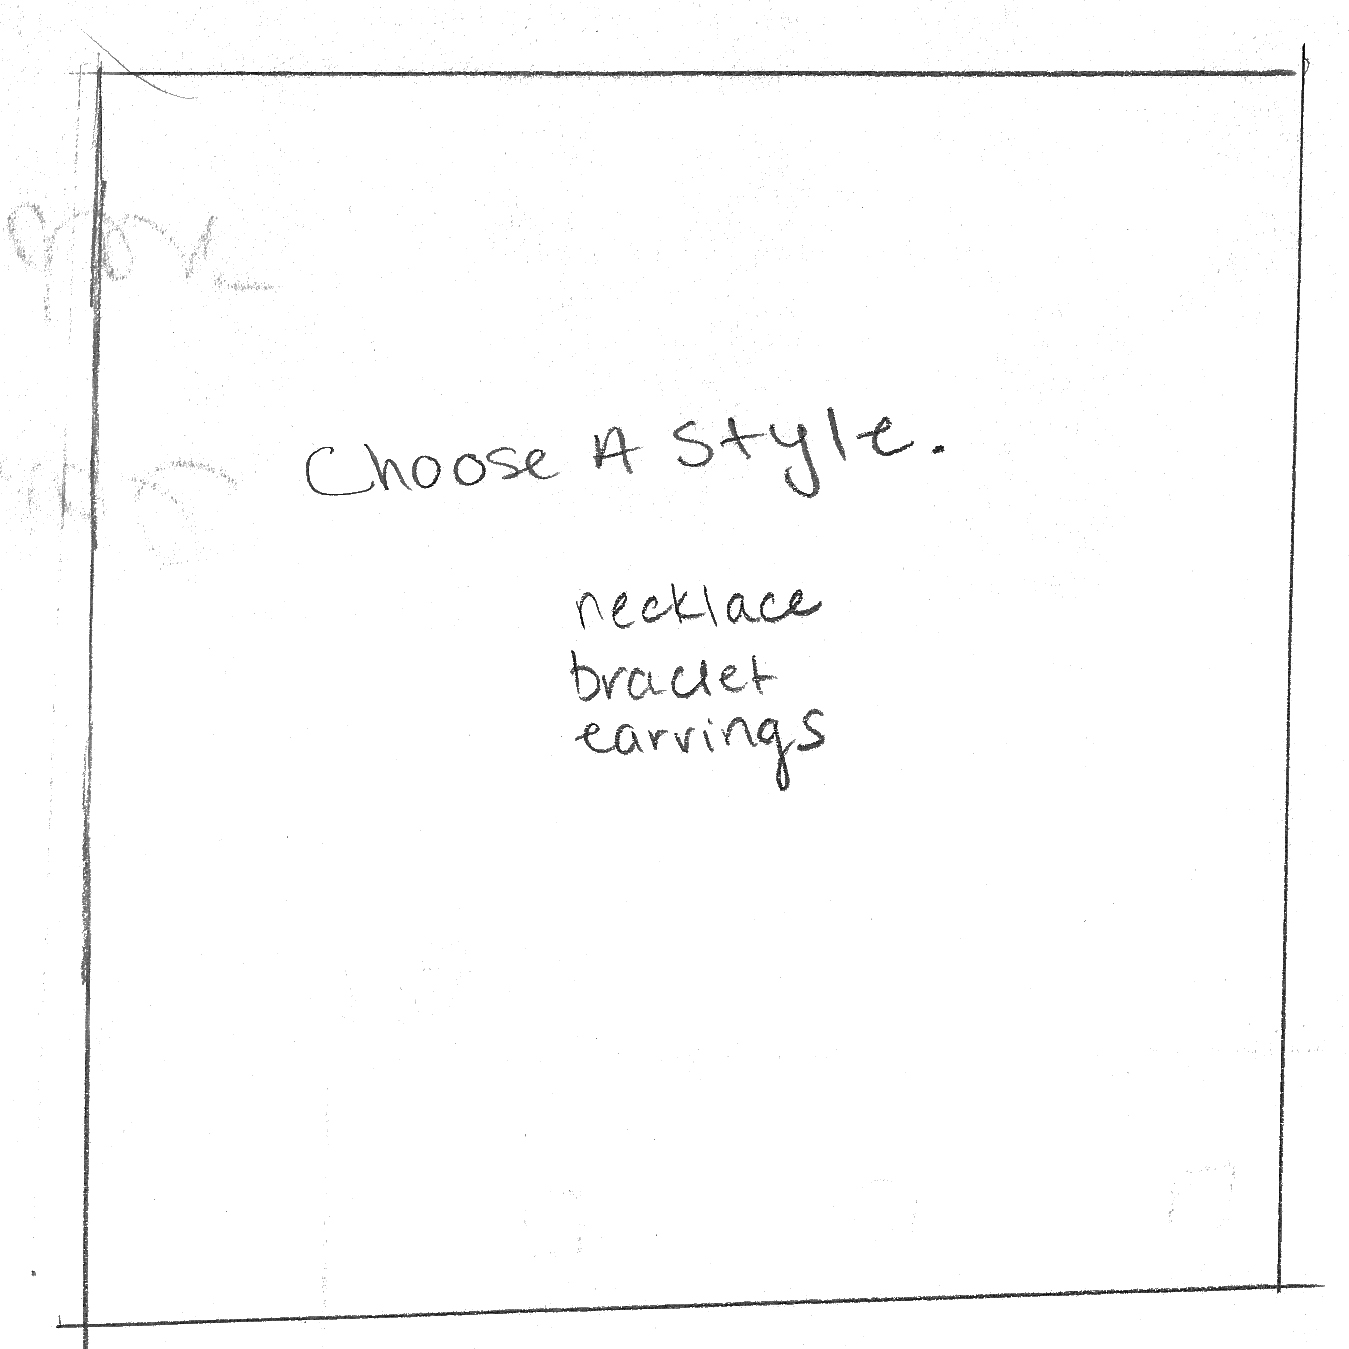 Choose A Style.
necklace
braclet
earrings